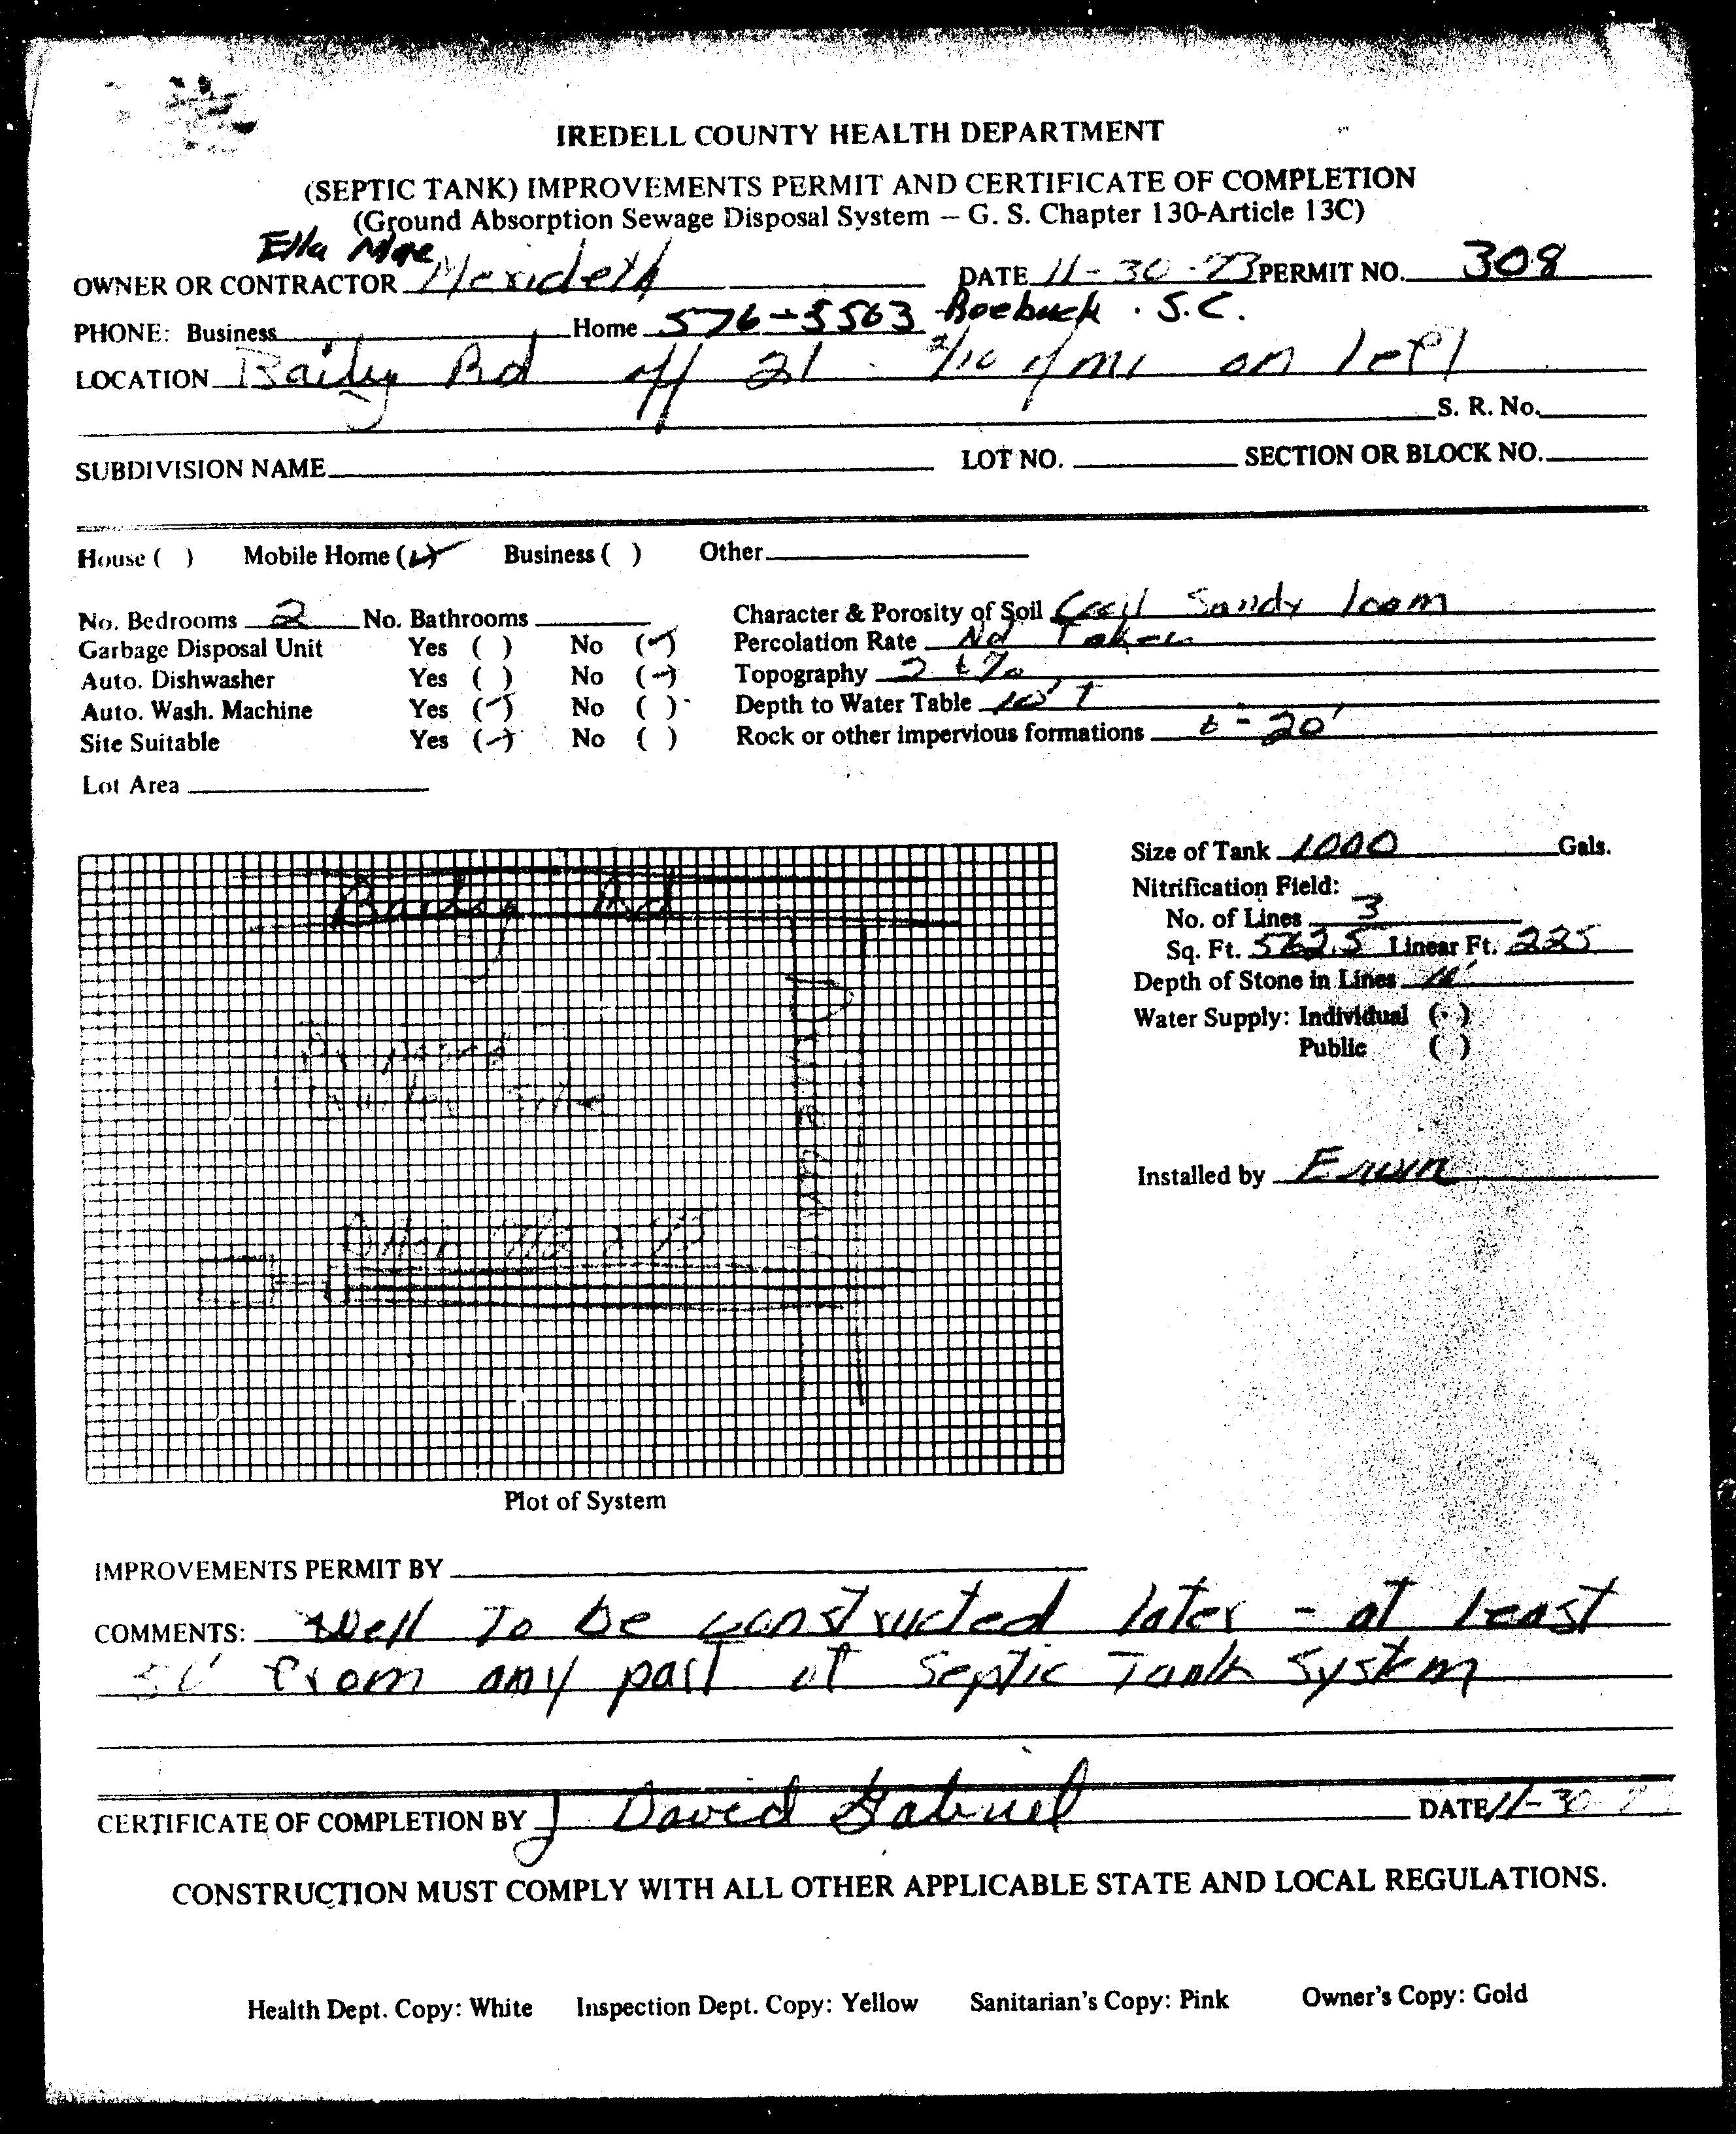 IREDELL COUNTY HEALTH DEPARTMENT
(SEPTIC TANK) IMPROVEMENTS PERMIT AND CERTIFICATE OF COMPLETION
(Ground Absorption Sewage Disposal System – G. S. Chapter 130-Article 13C)
Ella Mae
OWNER OR CONTRACTOR Merideth DATE 11-30-73 PERMIT NO. 308
PHONE: Business Home 576-5563 Roebuck . S.C.
LOCATION Baily Rd off 21 2/10 of mi on left
S. R. No.
SUBDIVISION NAME LOT NO. SECTION OR BLOCK NO.
House ( ) Mobile Home (✓) Business ( ) Other
No. Bedrooms 2 No. Bathrooms Character & Porosity of Soil Cecil Sandy loam
Garbage Disposal Unit Yes ( ) No (✓) Percolation Rate Not Taken
Auto. Dishwasher Yes ( ) No (✓) Topography 2 %
Auto. Wash. Machine Yes (✓) No ( ) Depth to Water Table 10'
Site Suitable Yes (✓) No ( ) Rock or other impervious formations 20'
Lot Area
Size of Tank 1000 Gals.
Nitrification Field:
No. of Lines 3
Sq. Ft. 562.5 Linear Ft. 225
Depth of Stone in Lines
Water Supply: Individual (·)
Public ( )
Installed by Erwin
Baily Rd
Proposed
Plot of System
IMPROVEMENTS PERMIT BY
COMMENTS: Well To be constructed later - at least
50' from any part of Septic Tank System
CERTIFICATE OF COMPLETION BY J David Gabriel DATE 11-30-7
CONSTRUCTION MUST COMPLY WITH ALL OTHER APPLICABLE STATE AND LOCAL REGULATIONS.
Health Dept. Copy: White Inspection Dept. Copy: Yellow Sanitarian's Copy: Pink Owner's Copy: Gold